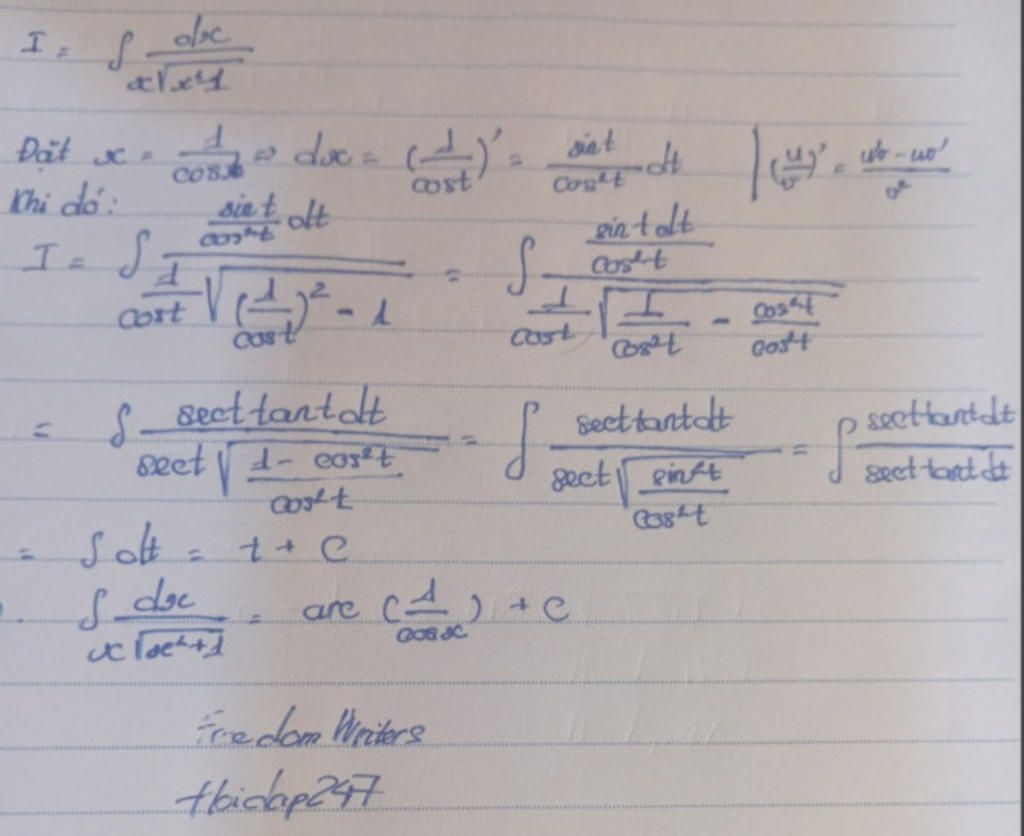 I = ∫ dx / x√x²-1
Đặt x = 1/cost ⇒ dx = (1/cost)' = sint/cos²t dt | (u/v)' = u'v - uv' / v²
Khi đó:
I = ∫ (sint/cos²t dt) / (1/cost √((1/cost)² - 1)) = ∫ (sint dt/cos²t) / (1/cost √(1/cos²t - cos²t/cos²t))
= ∫ sect tant dt / (sect √(1 - cos²t / cos²t)) = ∫ sect tant dt / (sect √(sin²t/cos²t)) = ∫ sect tant dt / sect tant dt
= ∫ dt = t + C
∫ dx / x√x²+1 = arc (1/cosx) + C
Freedom Writers
hoidap247